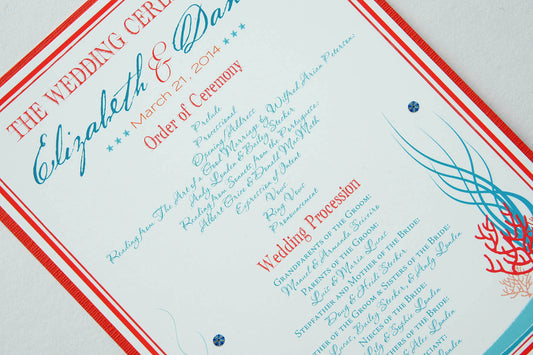 THE WEDDING CERE
Elizabeth & Dan
*** March 21, 2014 ***
Order of Ceremony
Prelude
Processional
Opening Address
Good Marriage by Wilfred Arlan Peterson
Reading from The Art of
Andy Landen & Bailey Stocker
Reading from Sonnets from the Portuguese:
Albert Grace & Donald Mc Math
Expression of Intent
Vows
Ring Vows
Pronouncement
Wedding Procession
Grandparents of the Groom:
Manuel & Armanda
Parents of the Groom:
Luis & Maria
Stepfather and Mother of the Bride:
Doug & Heidi Stocker
of the Groom & Sisters of the Bride:
Lucas, Bailey Stocker, & Andy Landen
Nieces of the Bride:
Lily & Sophie Landen
of the Bride:
& Alex Landen